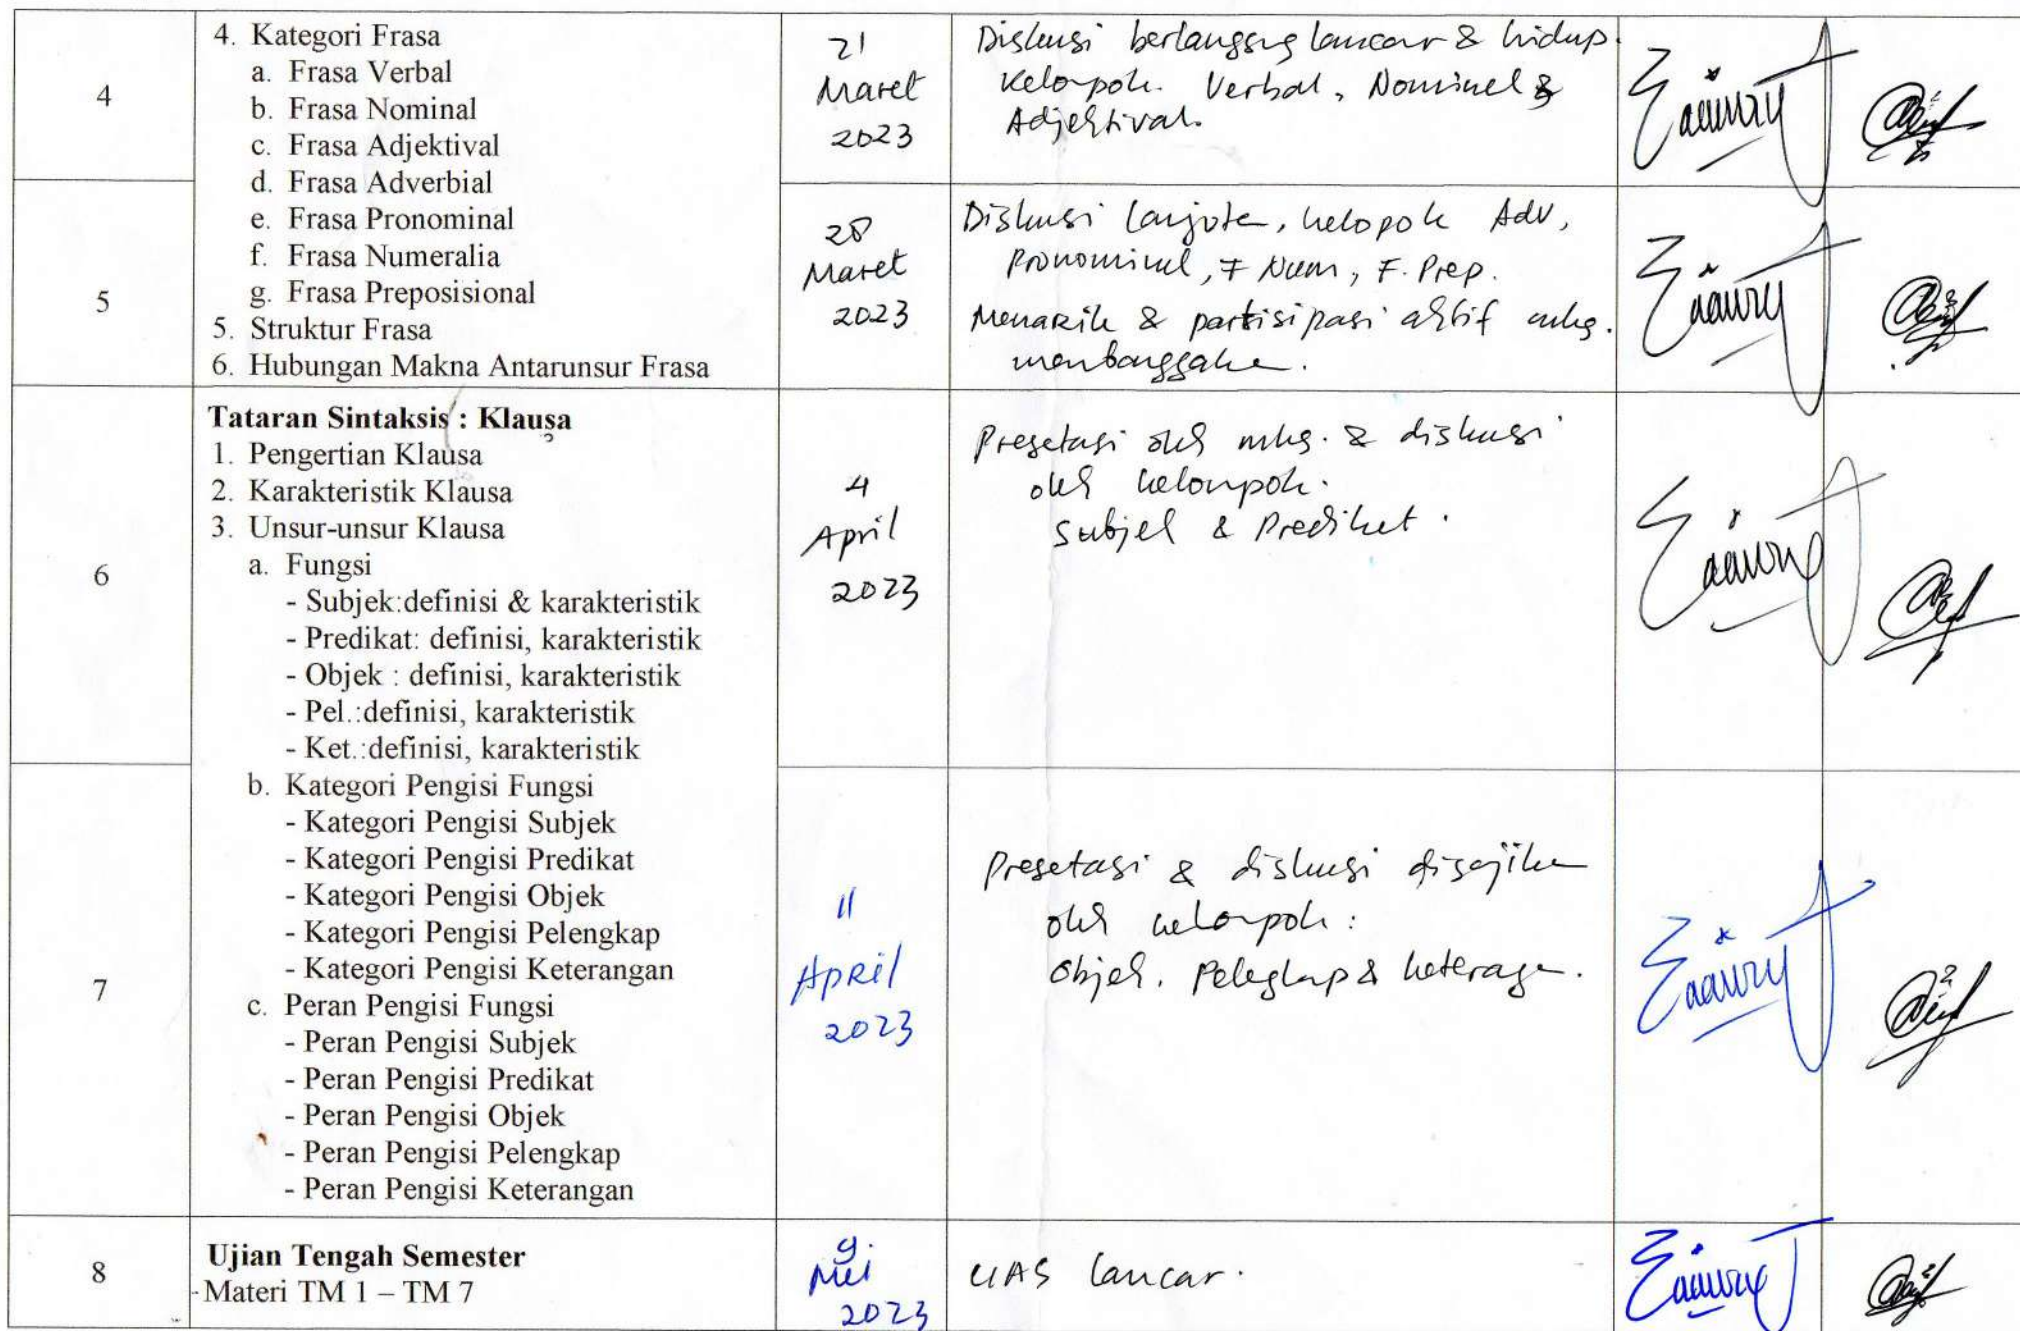 4
4. Kategori Frasa
a. Frasa Verbal
b. Frasa Nominal
c. Frasa Adjektival
d. Frasa Adverbial
e. Frasa Pronominal
f. Frasa Numeralia
g. Frasa Preposisional
5. Struktur Frasa
6. Hubungan Makna Antarunsur Frasa
21
Maret
2023
Diskusi berlangsung lancar & hidup.
Kelompok. Verbal, Nominal &
Adjektival.
5
28
Maret
2023
Diskusi lanjutan, kelopok Adv,
Pronominal, F Num, F. Prep.
Menarik & partisipasi aktif mhs.
membanggakan.
6
Tataran Sintaksis : Klausa
1. Pengertian Klausa
2. Karakteristik Klausa
3. Unsur-unsur Klausa
a. Fungsi
- Subjek:definisi & karakteristik
- Predikat: definisi, karakteristik
- Objek : definisi, karakteristik
- Pel.:definisi, karakteristik
- Ket.:definisi, karakteristik
b. Kategori Pengisi Fungsi
- Kategori Pengisi Subjek
- Kategori Pengisi Predikat
- Kategori Pengisi Objek
- Kategori Pengisi Pelengkap
- Kategori Pengisi Keterangan
c. Peran Pengisi Fungsi
- Peran Pengisi Subjek
- Peran Pengisi Predikat
- Peran Pengisi Objek
- Peran Pengisi Pelengkap
- Peran Pengisi Keterangan
4
April
2023
Presetasi oleh mhs. & diskusi
oleh kelompok.
Subjek & Predikat.
7
11
April
2023
Presetasi & diskusi disajikan
oleh kelompok:
Objek, Pelengkap & keterangan.
8
Ujian Tengah Semester
- Materi TM 1 – TM 7
9
Mei
2023
UAS lancar.